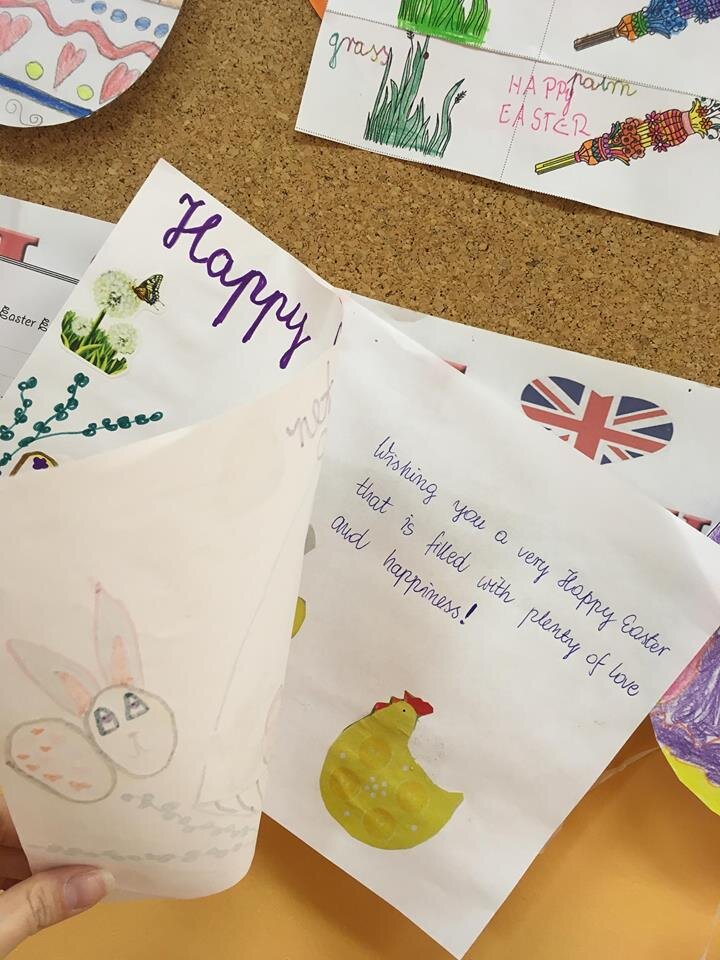 grass
HAPPY
EASTER
palm
Easter
Happy
Wishing you a very Happy Easter
that is filled with plenty of love
and happiness!